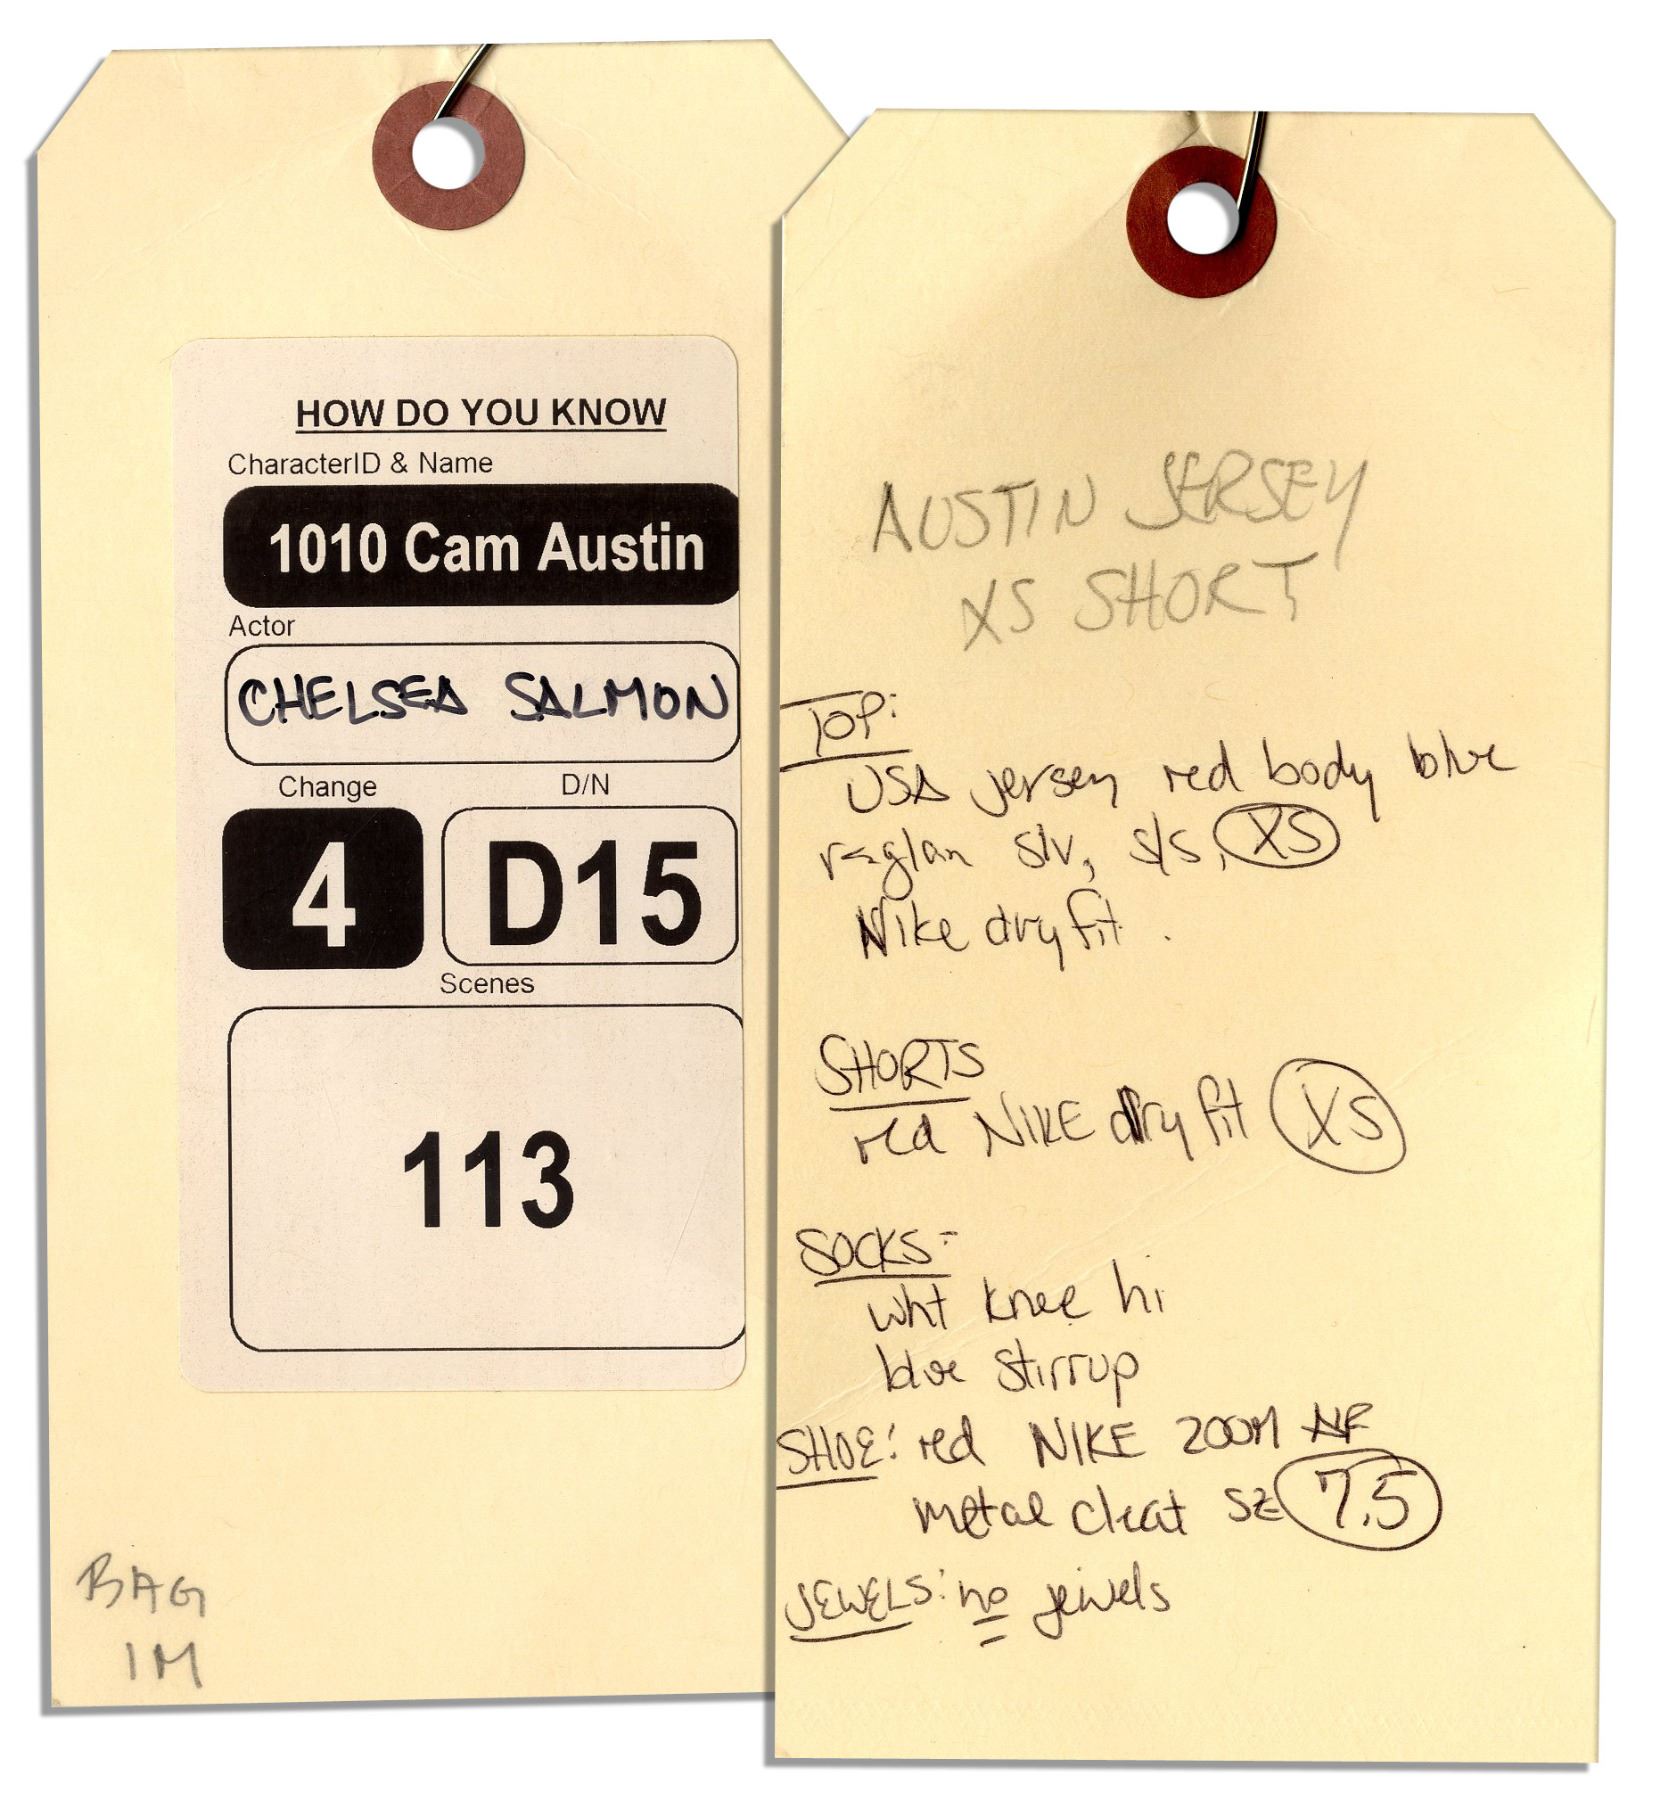 HOW DO YOU KNOW
CharacterID & Name
1010 Cam Austin
Actor
CHELSEA SALMON
Change D/N
4 D15
Scenes
113
BAG
1M
AUSTIN JERSEY
XS SHORT
TOP:
USA jersey red body blue
raglan slv, s/s, XS
Nike dry fit.
SHORTS
red NIKE dry fit XS
SOCKS:
wht knee hi
blue stirrup
SHOE: red NIKE ZOOM
metal cleat sz 7.5
JEWELS: no jewels